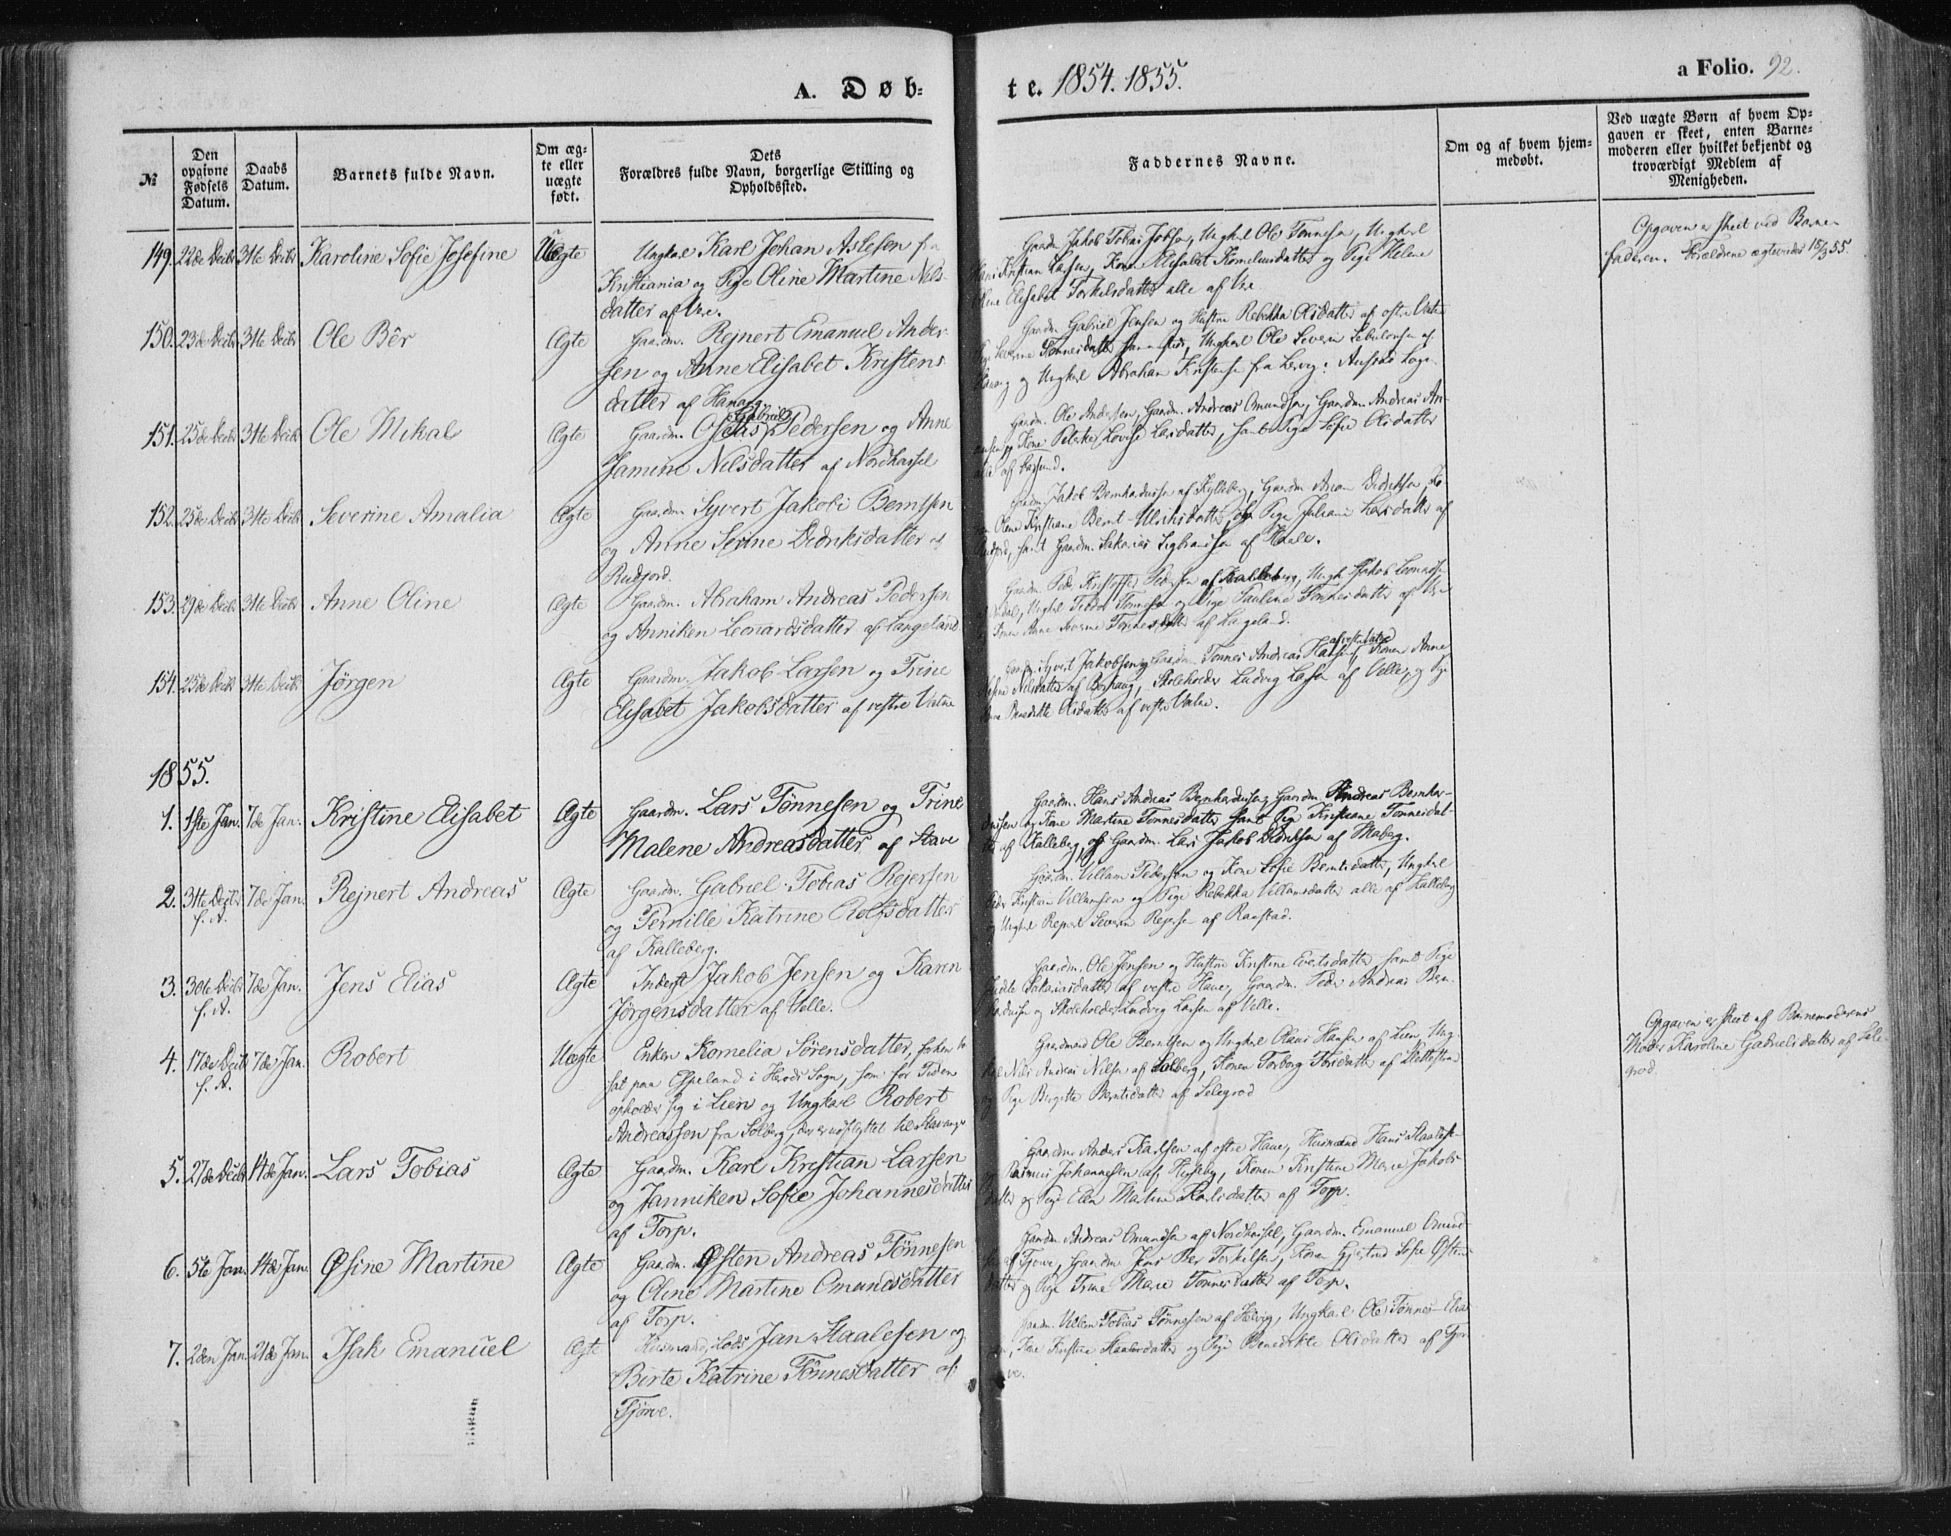 A. Døb-
te. 1854. 1855.
a Folio. 92.
№
Den opgivne Fødsels Datum.
Daabs Datum.
Barnets fulde Navn.
Om ægte eller uægte født.
Dets Forældres fulde Navn, borgerlige Stilling og Opholdssted.
Faddernes Navne.
Om og af hvem hjemmedøbt.
Ved uægte Børn af hvem Opgaven er skeet, enten Barnemoderen eller hvilket bekjendt og troværdigt Medlem af Menigheden.
149. 22de Decbr 31te Decbr Karoline Sofie Josefine Uægte Ungkarl Karl Johan Aslesen fra
Kristiania og Pige Oline Martine Nils-
datter af Vre.
Gaardm. Jakob Tobias Jobsen, Ungkarl Ole Tønnesen, Ungkarl
Kristian Larsen, Kone Elisabet Korneliusdatter og Pige Helene
Elisabet Torkelsdatter alle af Vre
Opgaven er skeet ved Barne-
faderen. Forældrene ægteviede 15/3 55.
150. 23de Decbr 31te Decbr Ole Bêr Ægte Gaardm. Rejnert Emanuel Ander-
sen og Anne Elisabet Kristens-
datter af Hanang.
Gaardm. Gabriel Jensen og Hustru Rebekka Olsdatter af østre Vatne
Tønnesdatter samme sted, Ungkarl Ole Severin
og Ungkarl Abraham Kristensen fra Lervig i Sogn.
151. 25de Decbr 31te Decbr Ole Mikal Ægte Gaardm. Gabriel Pedersen og Anne
Jamine Nilsdatter af Nordhassel
Gaardm. Ole Andersen, Gaardm. Andreas Omundsen, Gaardm. Andreas
Kone Lovise Larsdatter, samt Pige Sofie Olsdatter
152. 25de Decbr 31te Decbr Severine Amalia Ægte Gaardm. Syvert Jakob Berntsen
og Anne Serine Didriksdatter af
Rudjord.
Gaardm. Jakob Bernhardussen af Kjelleberg, Gaardm. Didriksen,
Olene Kristiane Bernt-Ulriksdatter, og Pige Juliane Larsdatter af
samt Gaardm. Sakarias Sigbrandsen af
153. 29de Decbr 31te Decbr Anne Oline Ægte Gaardm. Abraham Andreas Pedersen
og Anniken Leonardsdatter af Langeland
Gaardm. Peder Kristoffer Pedersen af Kalleberg, Ungk. Jakob
Ungkarl Tønnesen og Pige Pauline Tønnesdatter af Vre
Anne Severine Tønnesdatter af Langeland.
154. 25de Decbr 31te Decbr Jörgen Ægte Gaardm. Jakob Larsen og Trine
Elisabet Jakobsdatter af vestre Vatne
Syvert Jakobsen, Gaardm. Tønnes Andreas Hansen af vestre Vatne, Konen Anne
Nilsdatter af Borhaug, Skoleholder Ludvig Larsen af Velle, og Pige
Benedikte Olsdatter af vestre Vatne.
1855.
1. 1ste Jan. 7de Jan. Kristine Elisabet Ægte Gaardm. Lars Tønnesen og Trine
Malene Andreasdatter af Stave
Gaardm. Hans Andreas Bernhardussen, Gaardm. Andreas Bernhar-
dussen og Kone Martine Tønnesdatter samt Pige Kristiane Tønnesdat-
ter af Kalleberg, og Gaardm. Lars Jakob Didriksen af Maberg.
2. 31te Decbr f. A. 7de Jan. Rejnert Andreas Ægte Gaardm. Gabriel Tobias Rejersen
og Pernille Katrine Rolfsdatter
af Kalleberg.
Gaardm. Villam Pedersen og Kone Sofie Berntsdatter, Ungkarl
Peder Kristian Villamsen og Pige Rebekka Villamsdatter alle af Kalleberg
og Ungkarl Rejnert Severin Rejersen af Raastad.
3. 30te Decbr f. A. 7de Jan. Jens Elias Ægte Inderst Jakob Jensen og Karen
Jørgensdatter af Velle.
Gaardm. Ole Jensen og Hustru Kristine Evertsdatter, samt Pige
Sakariasdatter af vestre Haue, Gaardm. Peder Andreas Bern-
hardussen og Skoleholder Ludvig Larsen af Velle.
4. 17de Decbr f. A. 7de Jan. Robert Uægte Enken Kornelia Sørensdatter, boesat
paa Espeland i Herads Sogn, som for Tiden
opholder sig i Lien og Ungkarl Robert
Andreassen fra Solberg, der er udflyttet til Stavanger
Gaardmand Ole Berntsen og Ungkarl Olaus Hansen af Lien, Ung-
karl Nils Andreas Nilsen af Solberg, Konen Torborg
og Pige Birgitte Berntsdatter af Selegrod
Opgaven er skeet af Barnemoderens
Moder Karoline Gabrielsdatter af Sele-
grod.
5. 27de Decbr 14de Jan. Lars Tobias Ægte Gaardm. Karl Kristian Larsen
og Janniken Sofie Johannesdatter
af Torp.
Gaardm. Anders Karlsen af østre Haue, Husmand Hans
Rasmus Johannesen af Huseby, Konen Kristine Marie Jakobs-
datter og Pige Elen Malene Karlsdatter af Torp.
6. 5te Jan. 14de Jan. Øsine Martine Ægte Gaardm. Østen Andreas Tönnesen
og Oline Martine Omundsdatter
af Torp.
Gaardm. Andreas Omundsen af Nordhassel, Gaardm. Emanuel Omund-
sen af Tjørve, Gaardm. Jens Ber Torkilsen, Konen Gjertrud Sofie Østens-
datter og Pige Trine Marie Tønnesdatter af Torp.
7. 2den Jan. 21de Jan. Isak Emanuel Ægte Husmand, Lods Jan Staalesen og
Birte Katrine Tønnesdatter af
Tjörve.
Gaardm. Villem Tobias Tönnesen af Helvig, Ungkarl Ole Tønnes Elia-
sen, Kone Kristine og Pige Benedikte Olsdatter af Tjör-
ve.